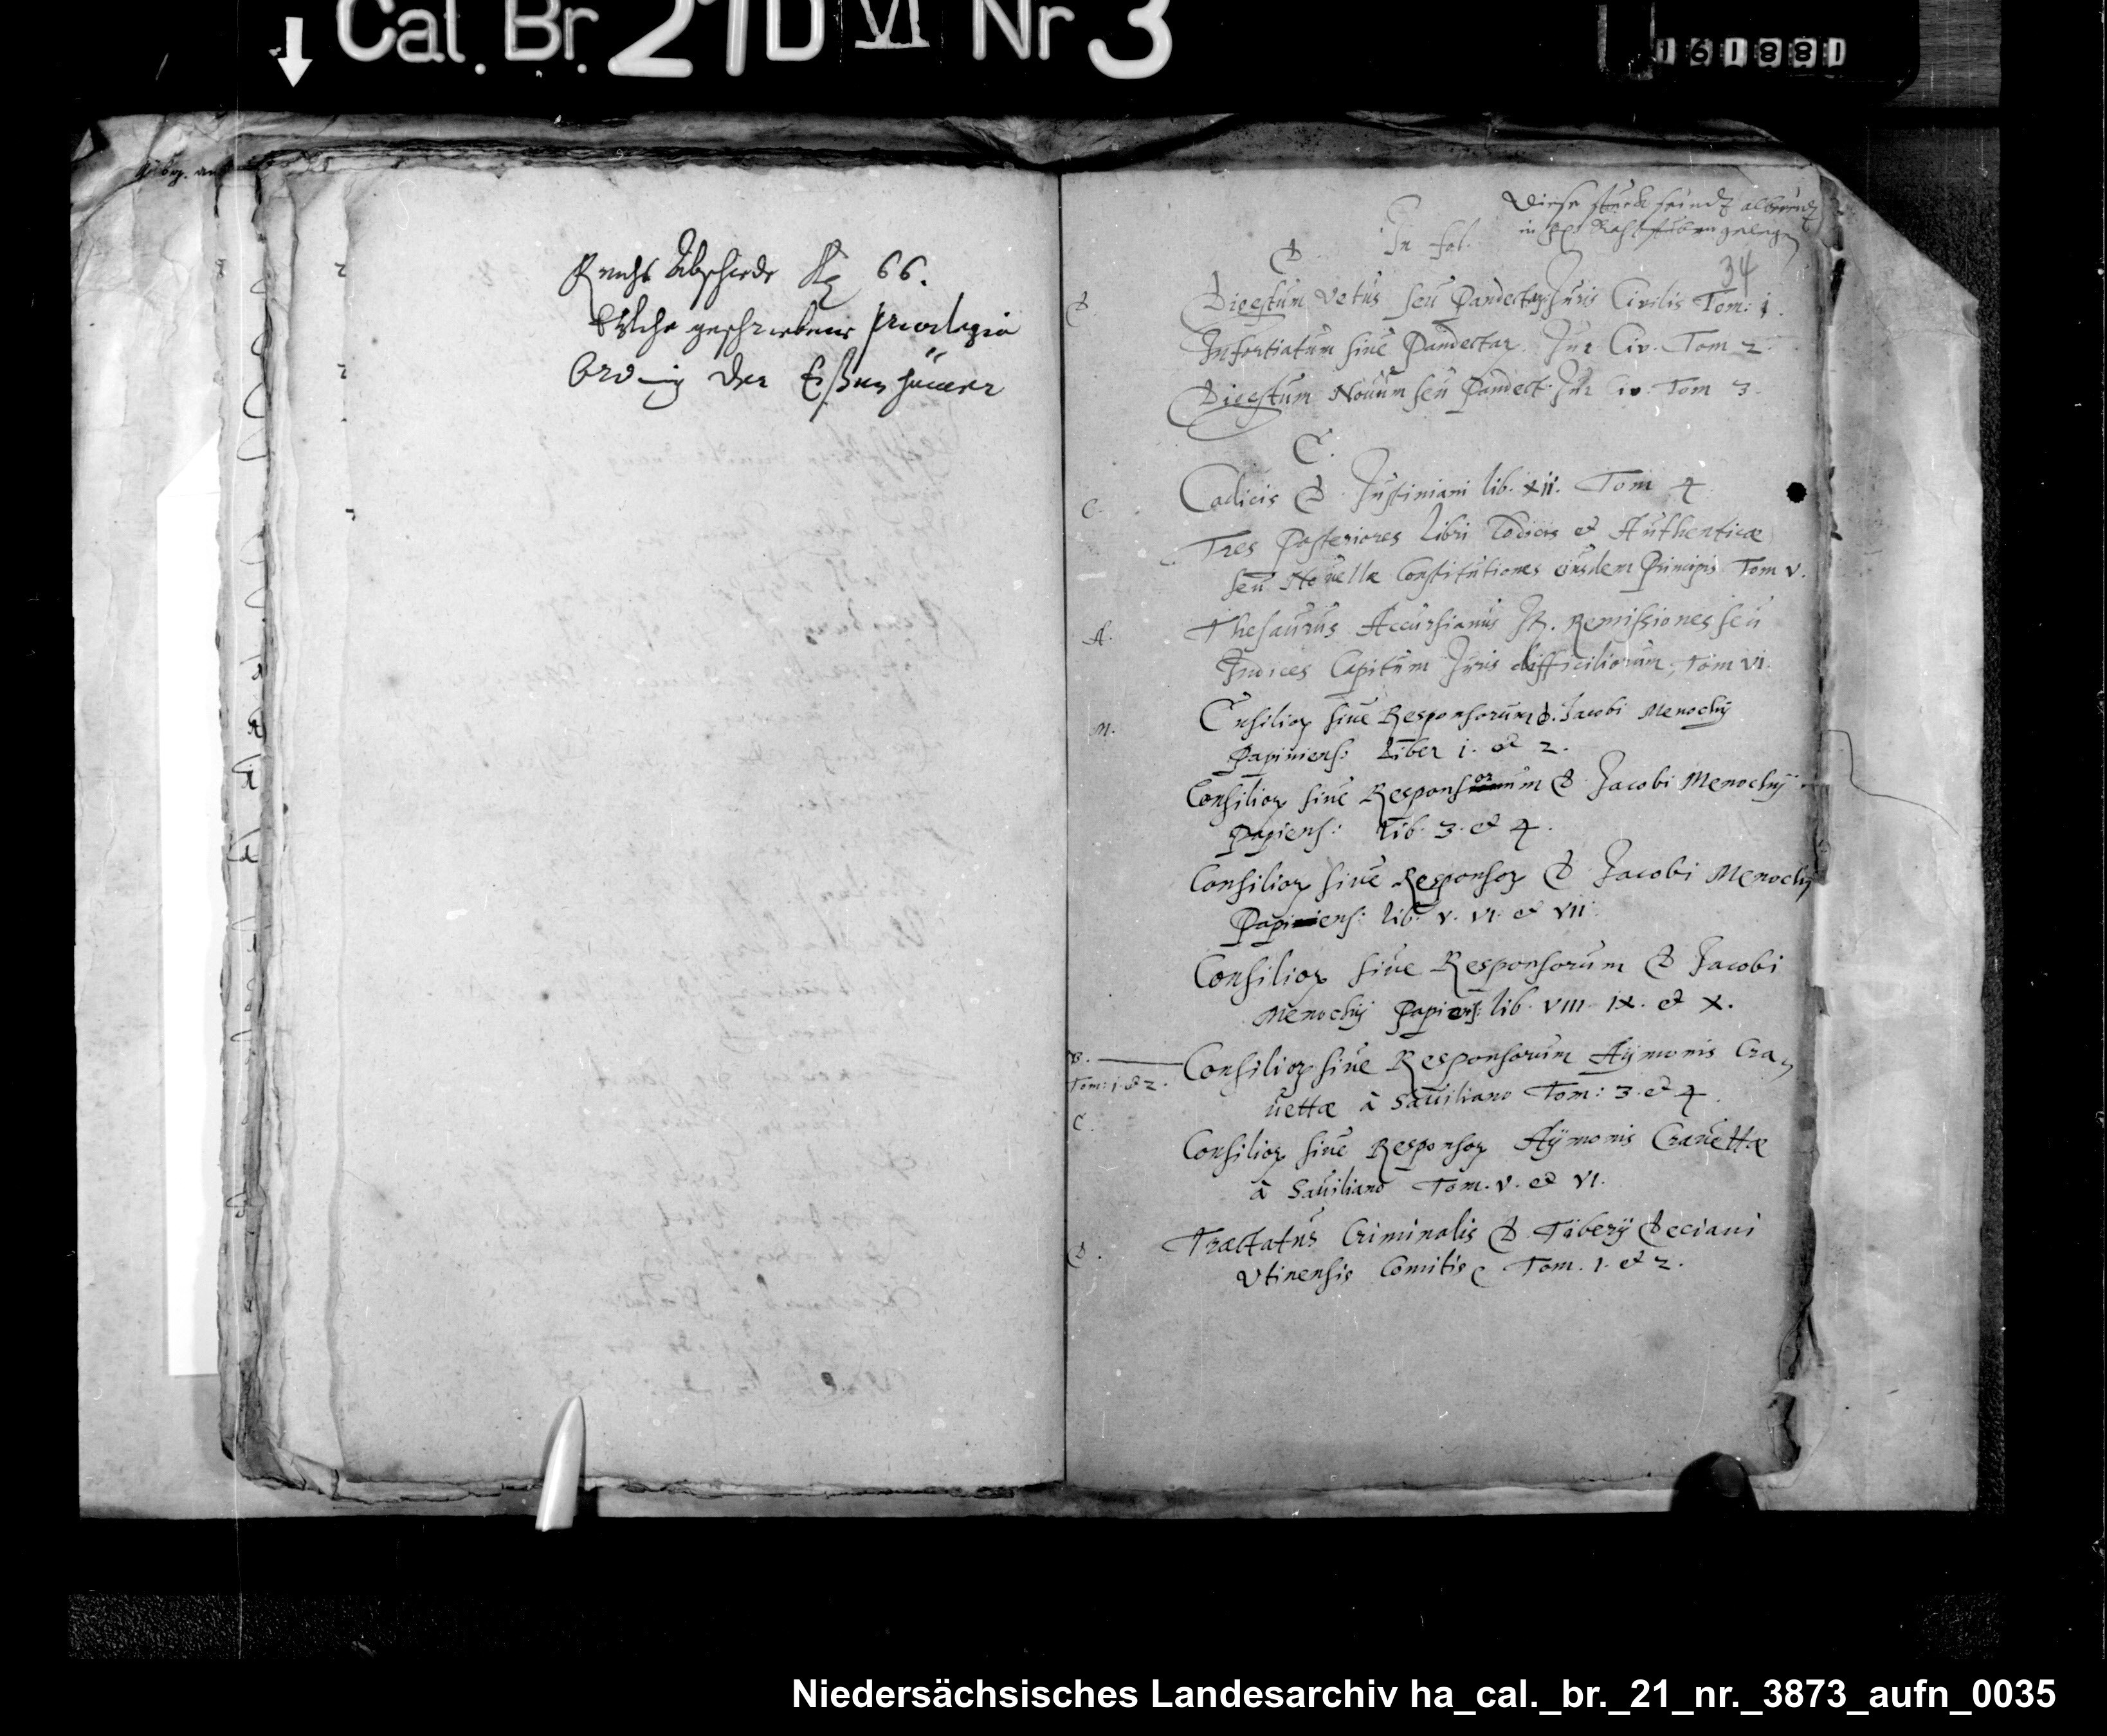 Cal. Br. 21 D VI Nr 3
161881
Reichs Abschiede 66.
Etliche geschriebene privilegia
Ordnung der Eßenhäuer
Diese stuck seindt
in gelegen
In fol.
34
D
D. Digestum Vetus seu Pandectar. Juris Civilis Tom: 1.
Infortiatum siue Pandectar. Jur. Civ. Tom 2.
Digestum Nouum seu Pandect. Jur. Civ. Tom 3.
C.
C. Codicis D. Justiniani lib. XII. Tom 4
Tres Posteriores Libri Codicis et Authenticæ
seu Nouellæ Constitutiones eiusdem Principis Tom V.
A. Thesaurus Accursianus Remissiones seu
Indices Capitum Juris difficiliorum, Tom VI.
M. Consilior siue Responsorum D. Jacobi Menochij
Papiniens: Liber 1. et 2.
Consilior siue Responsorum D. Jacobi Menochij
Papiens: Lib. 3. et 4.
Consilior siue Responsor D. Jacobi Menochij
Papiens: lib. V. VI. et VII.
Consilior siue Responsorum D. Jacobi
Menochij Papiens: lib. VIII. IX. et X.
Consilior siue Responsorum Aÿmonis Cra-
Tom: 1. et 2.
uettæ à Sauiliano Tom: 3. et 4.
C.
Consilior siue Responsor Aÿmonis Crauettæ
à Sauiliano Tom. V. et VI.
D. Tractatus Criminalis D. Tiberij Deciani
Vtinensis Comitis Tom. 1. et 2.
Niedersächsisches Landesarchiv ha_cal._br._21_nr._3873_aufn_0035